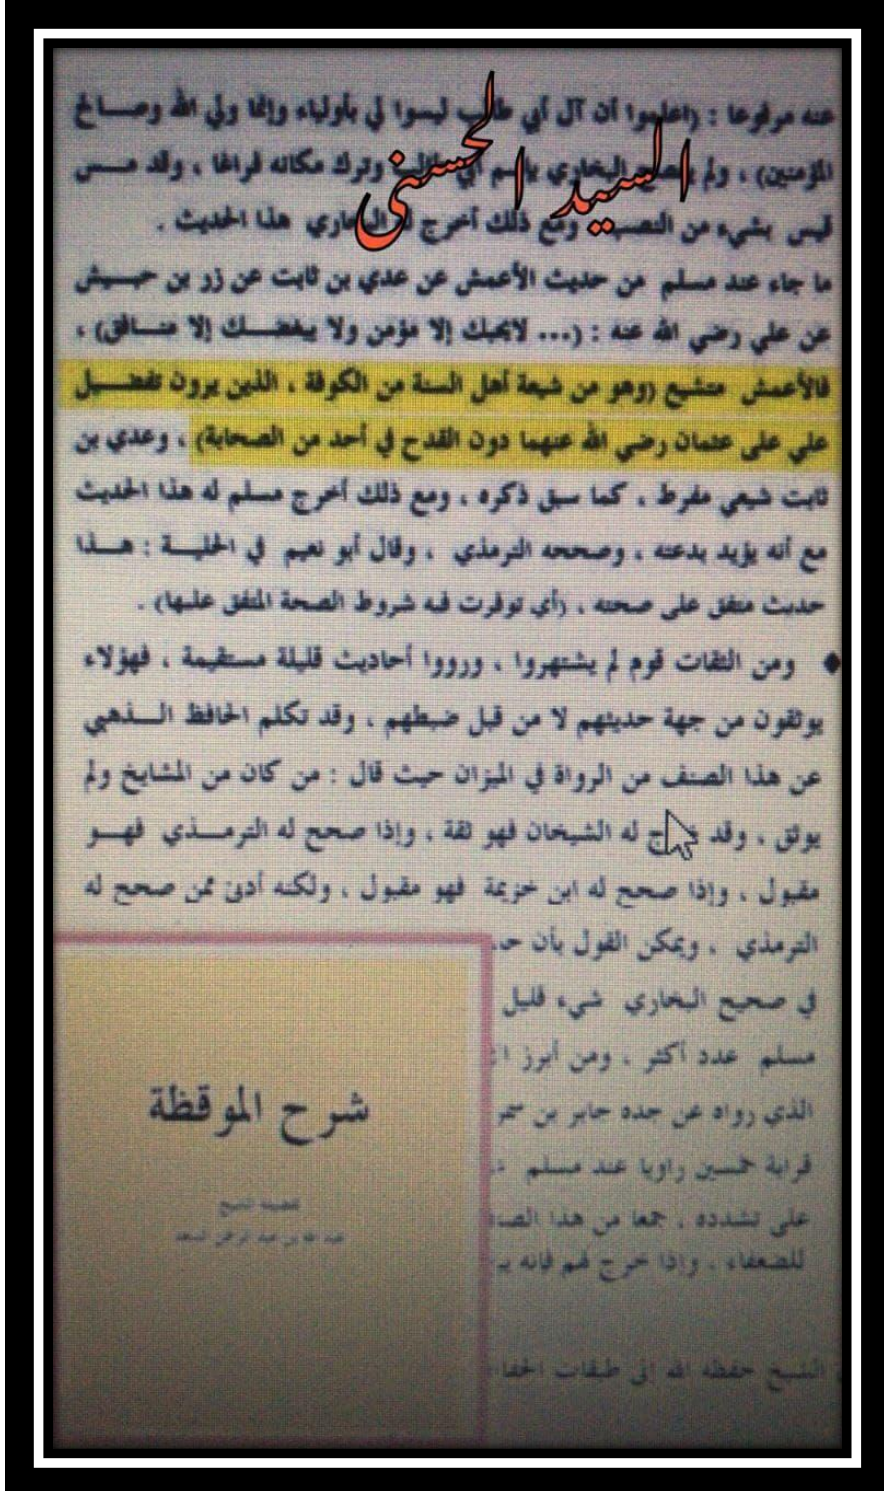 عنه مرفوعا : (اعلموا أن آل أبي طالب ليسوا لي بأولياء وإنما ولي الله وصالح
المؤمنين) ، ولم البخاري باسم أبي طالب وترك مكانه فراغا ، وقد مس
قيس بشيء من النصب ومع ذلك أخرج له البخاري هذا الحديث .
السيد الحسني
ما جاء عند مسلم من حديث الأعمش عن عدي بن ثابت عن زر بن حبيش
عن علي رضي الله عنه : (... لايحبك إلا مؤمن ولا يبغضك إلا منافق) ،
فالأعمش متشيع (وهو من شيعة أهل السنة من الكوفة ، الذين يرون تفضيل
علي على عثمان رضي الله عنهما دون القدح في أحد من الصحابة) ، وعدي بن
ثابت شيعي مفرط ، كما سبق ذكره ، ومع ذلك أخرج مسلم له هذا الحديث
مع أنه يؤيد بدعته ، وصححه الترمذي ، وقال أبو نعيم في الحلية : هذا
حديث متفق على صحته ، (أي توفرت فيه شروط الصحة المتفق عليها) .
♦ ومن الثقات قوم لم يشتهروا ، ورووا أحاديث قليلة مستقيمة ، فهؤلاء
يوثقون من جهة حديثهم لا من قبل ضبطهم ، وقد تكلم الحافظ الذهبي
عن هذا الصنف من الرواة في الميزان حيث قال : من كان من المشايخ ولم
يوثق ، وقد له الشيخان فهو ثقة ، وإذا صحح له الترمذي فهو
مقبول ، وإذا صحح له ابن خزيمة فهو مقبول ، ولكنه أدنى ممن صحح له
الترمذي ، ويمكن القول بأن
في صحيح البخاري شيء قليل
مسلم عدد أكثر ، ومن أبرز
الذي رواه عن جده جابر بن سمر
قرابة خمسين راويا عند مسلم
على تشدده ، جمعا من هذا
للضعفاء ، وإذا خرج لهم فإنه
الشيخ حفظه الله إلى طبقات
شرح الموقظة
لفضيلة الشيخ
عبد الله بن عبد الرحمن السعد